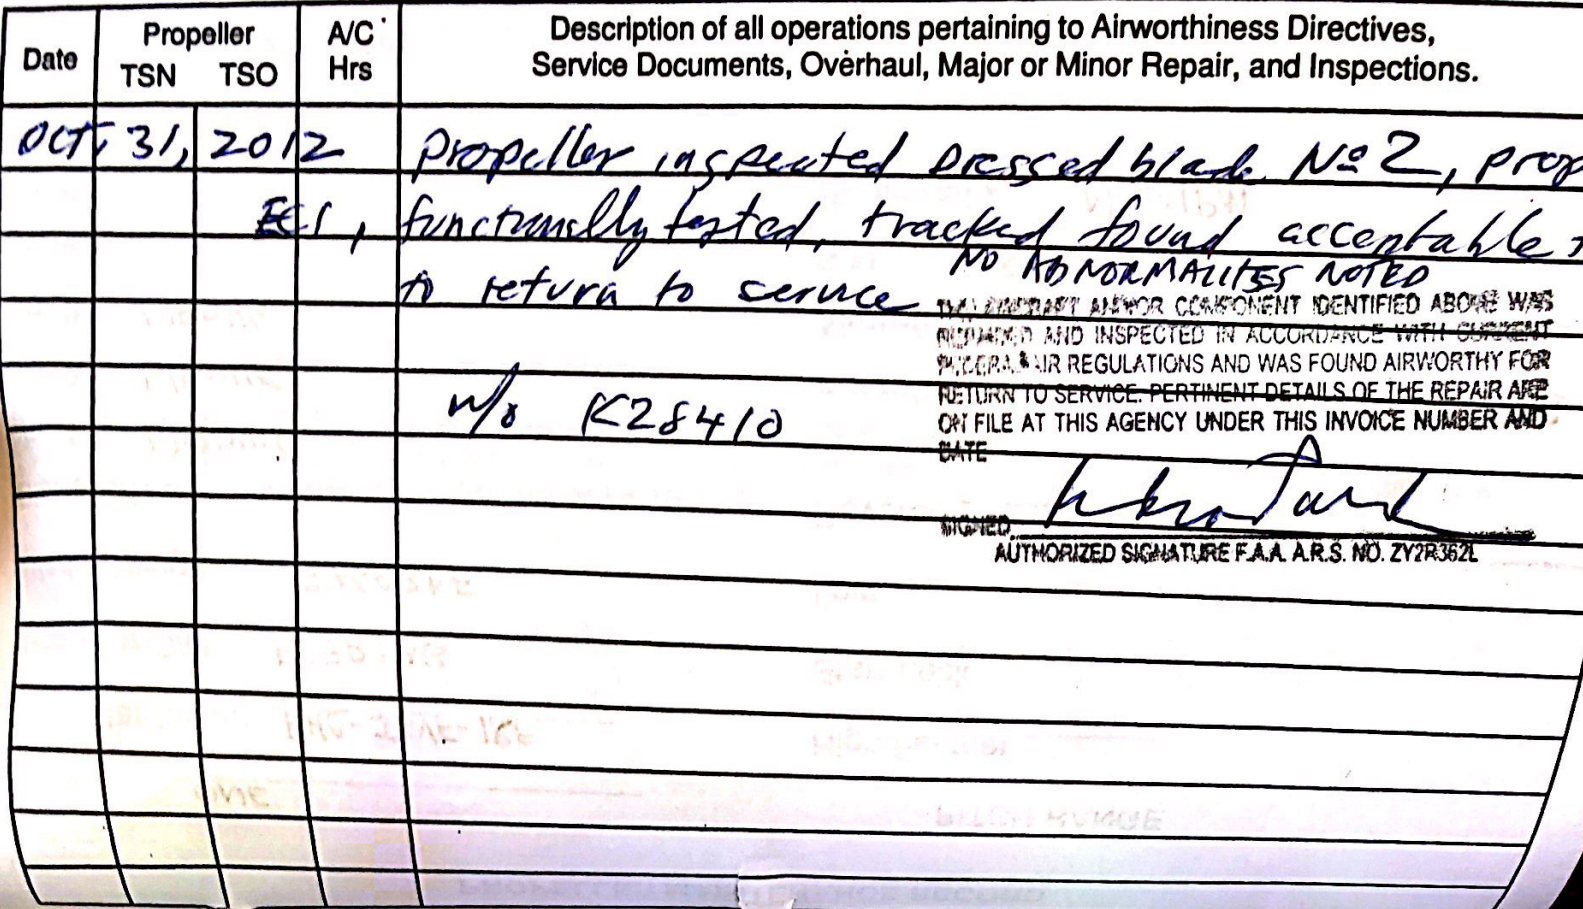 Date
Propeller
TSN TSO
A/C
Hrs
Description of all operations pertaining to Airworthiness Directives,
Service Documents, Overhaul, Major or Minor Repair, and Inspections.
OCT, 31, 2012 Propeller inspected Dressed blade Nº 2, prop
functionally tested, tracked found acceptable
NO ABNORMALITIES NOTED
to return to service
THE AIRCRAFT AND/OR COMPONENT IDENTIFIED ABOVE WAS
REPAIRED AND INSPECTED IN ACCORDANCE WITH CURRENT
FEDERAL AIR REGULATIONS AND WAS FOUND AIRWORTHY FOR
RETURN TO SERVICE. PERTINENT DETAILS OF THE REPAIR ARE
ON FILE AT THIS AGENCY UNDER THIS INVOICE NUMBER AND
DATE
W/o K28410
SIGNED
AUTHORIZED SIGNATURE F.A.A. A.R.S. NO. ZY2R362L